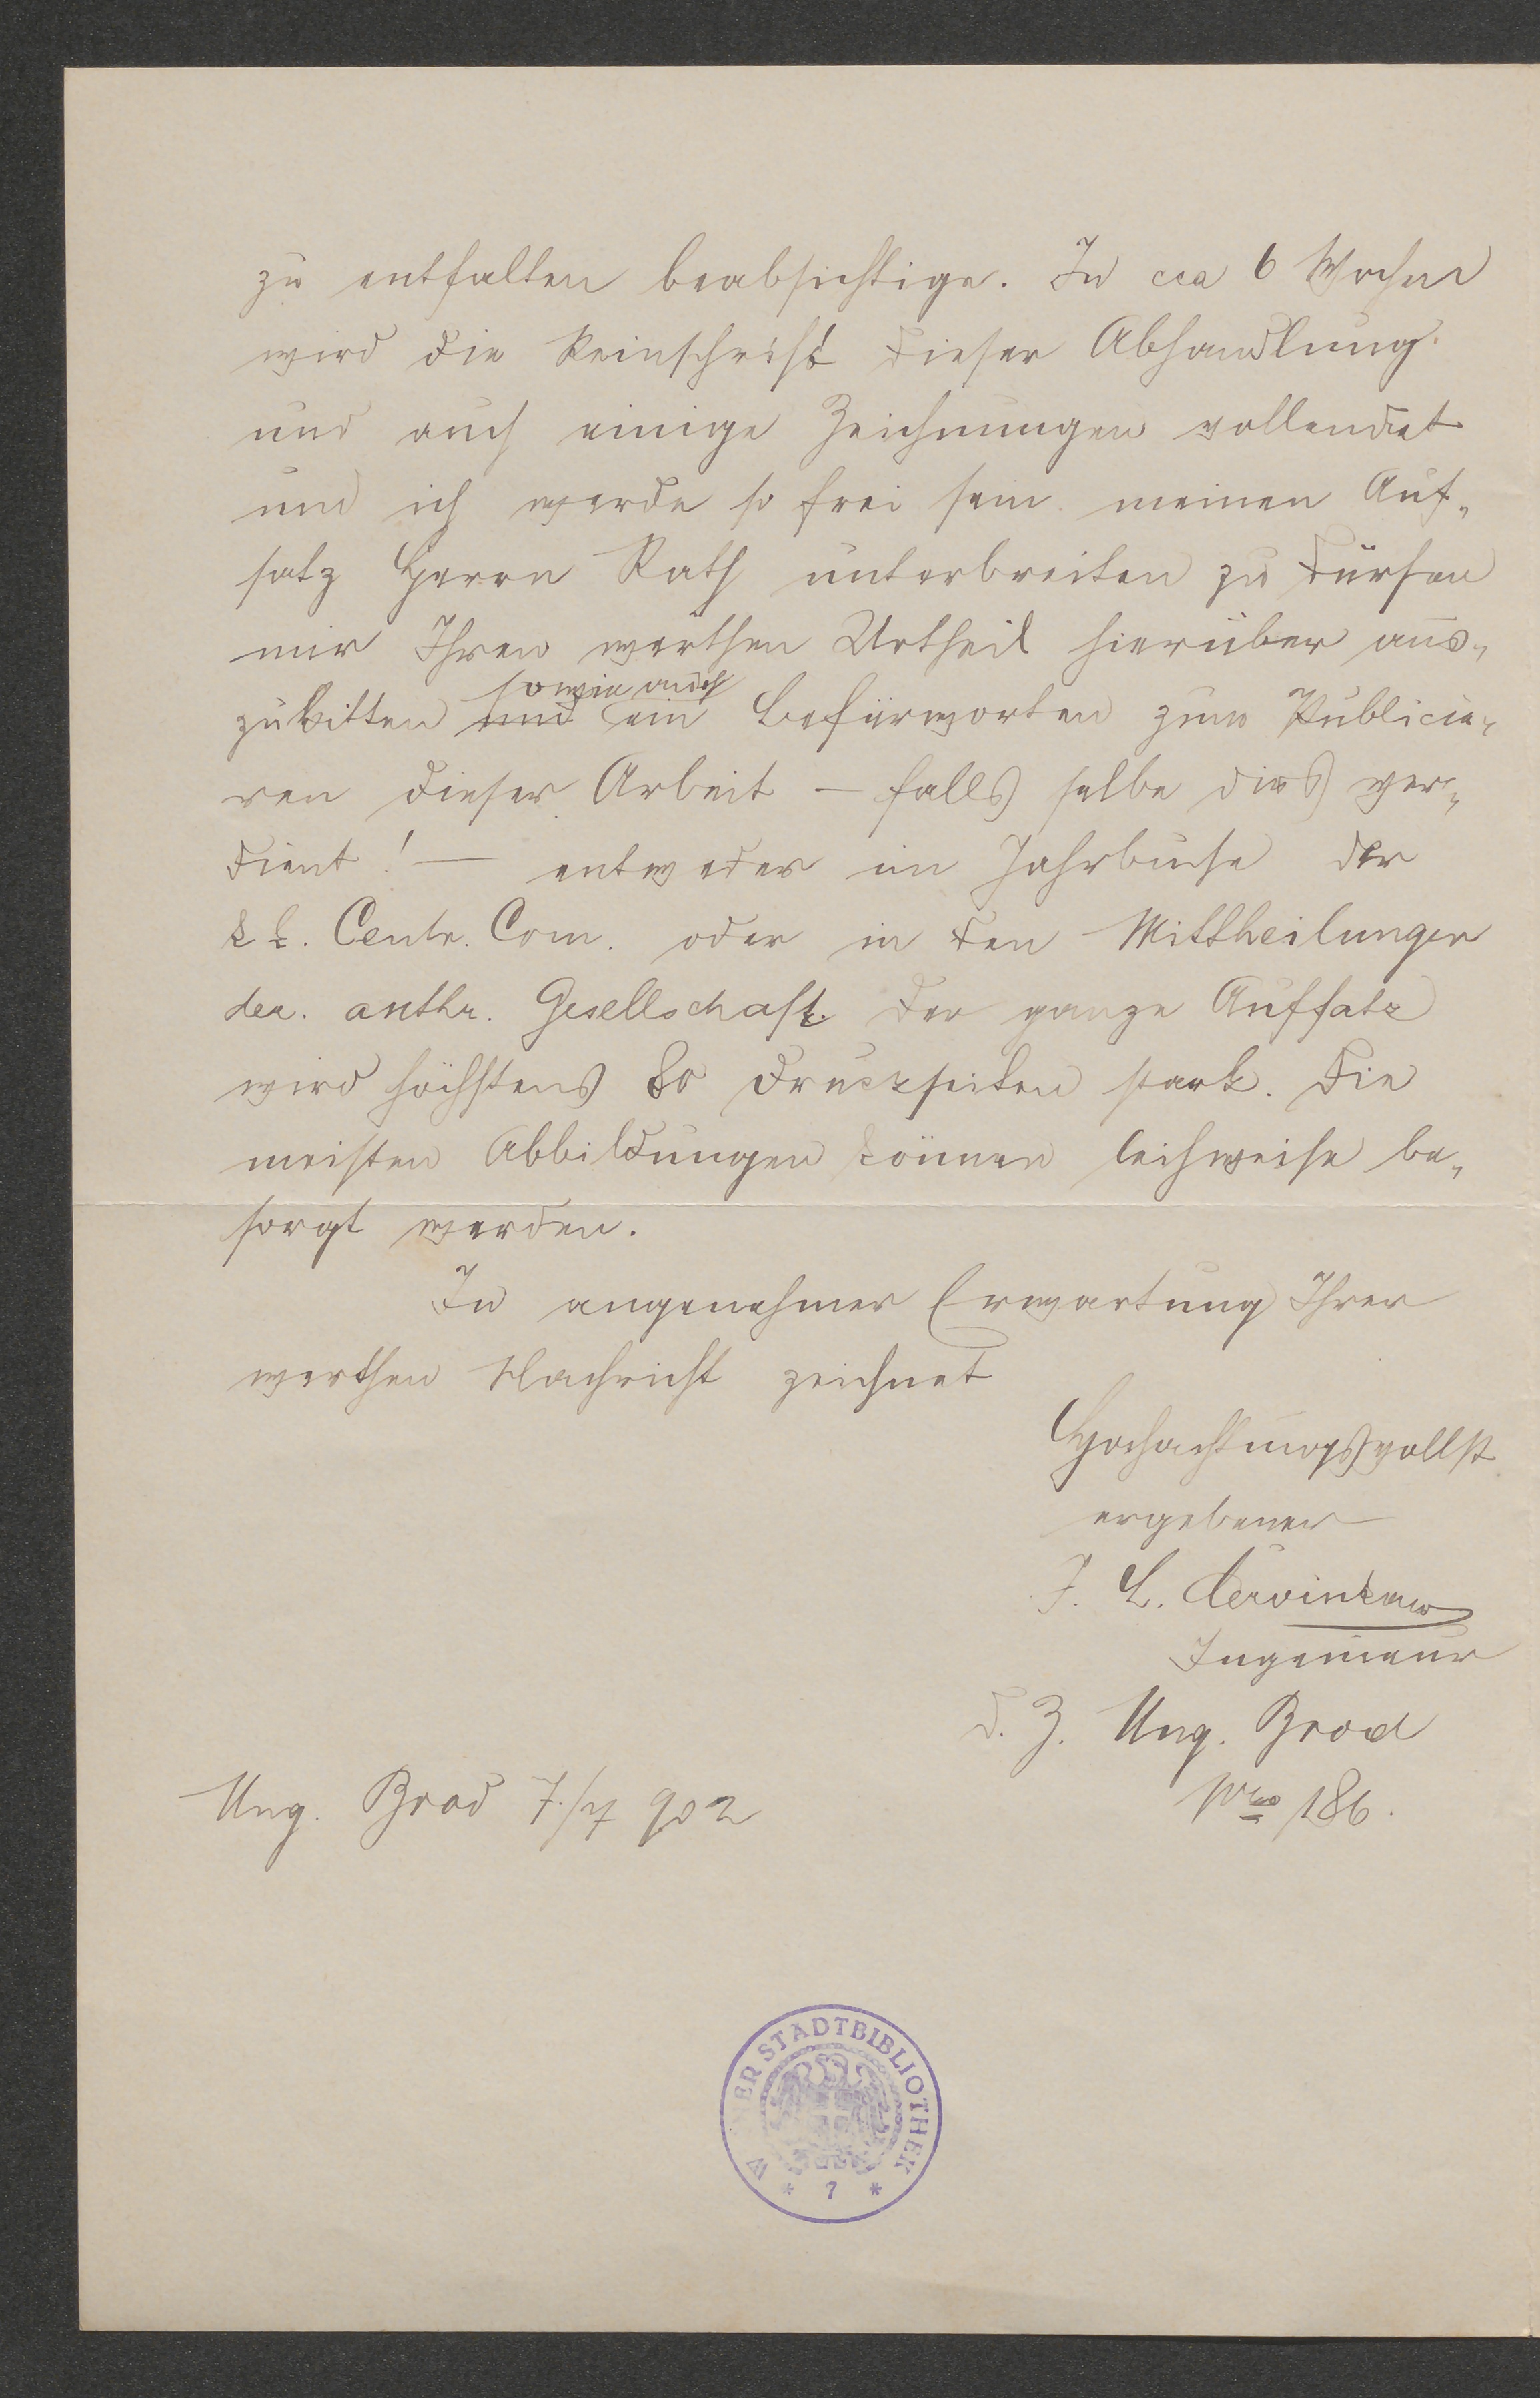 zu entfalten beabsichtige. In cca 6 Wochen
wird die Reinschrift dieser Abhandlung
und auch einige Zeichnungen vollendet
und ich werde so frei sein meinen Auf-
satz Herrn Rath unterbreiten zu dürfen
mir Ihren werthen Urtheil hierüber aus-
sowie auch
zubitten und ein Befürworten zum Publicie-
ren dieser Arbeit — falls selbe dies ver-
dient! — entweder im Jahrbuche der
k k. Centr. Com. oder in den Mittheilungen
der. anthr. Gesellschaft. Der ganze Aufsatz
wird höchstens 80 Druckseiten stark. Die
meisten Abbildungen können leihweise be-
sorgt werden.
In angenehmer Erwartung Ihrer
werthen Nachricht zeichnet
Hochachtungsvollst
ergebener
I. L. Červinka
Ingenieur
d. Z. Ung. Brod
Nro 186.
Ung. Brod 7./4 902
WIENER STADTBIBLIOTHEK
* 7 *